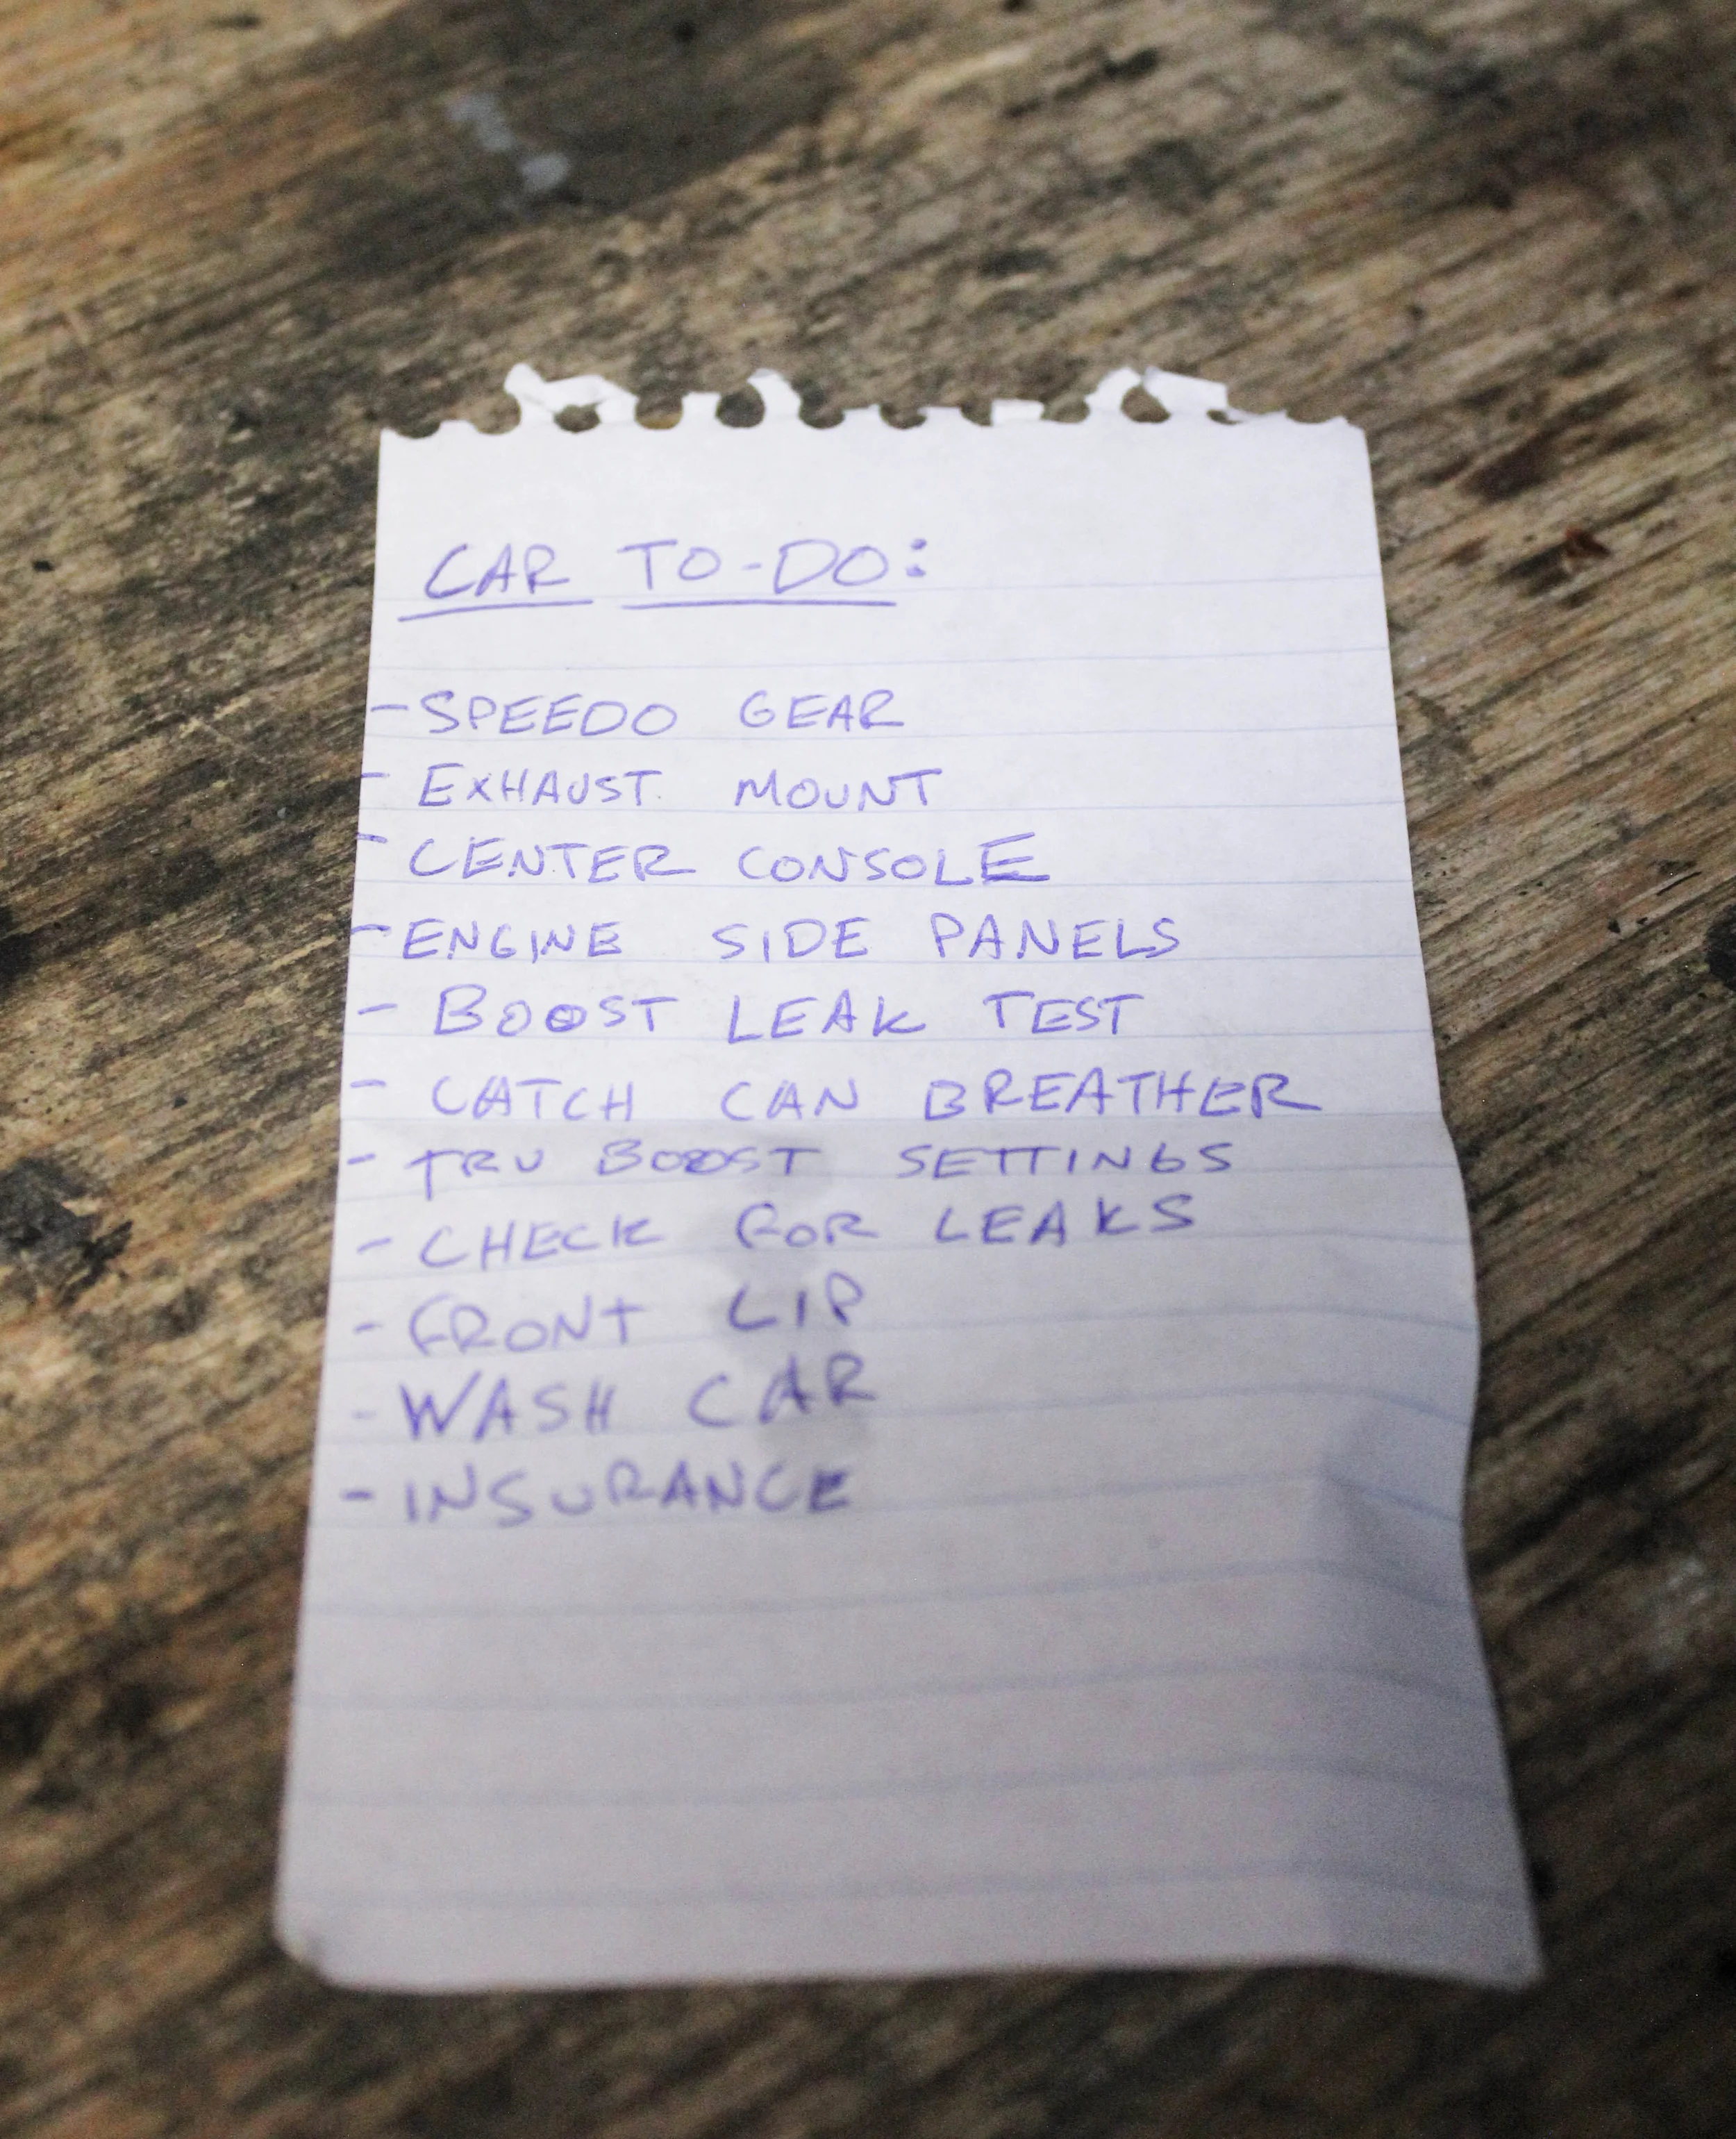 CAR TO-DO:
- SPEEDO GEAR
- EXHAUST MOUNT
- CENTER CONSOLE
- ENGINE SIDE PANELS
- BOOST LEAK TEST
- CATCH CAN BREATHER
- TRU BOOST SETTINGS
- CHECK FOR LEAKS
- FRONT LIP
- WASH CAR
- INSURANCE